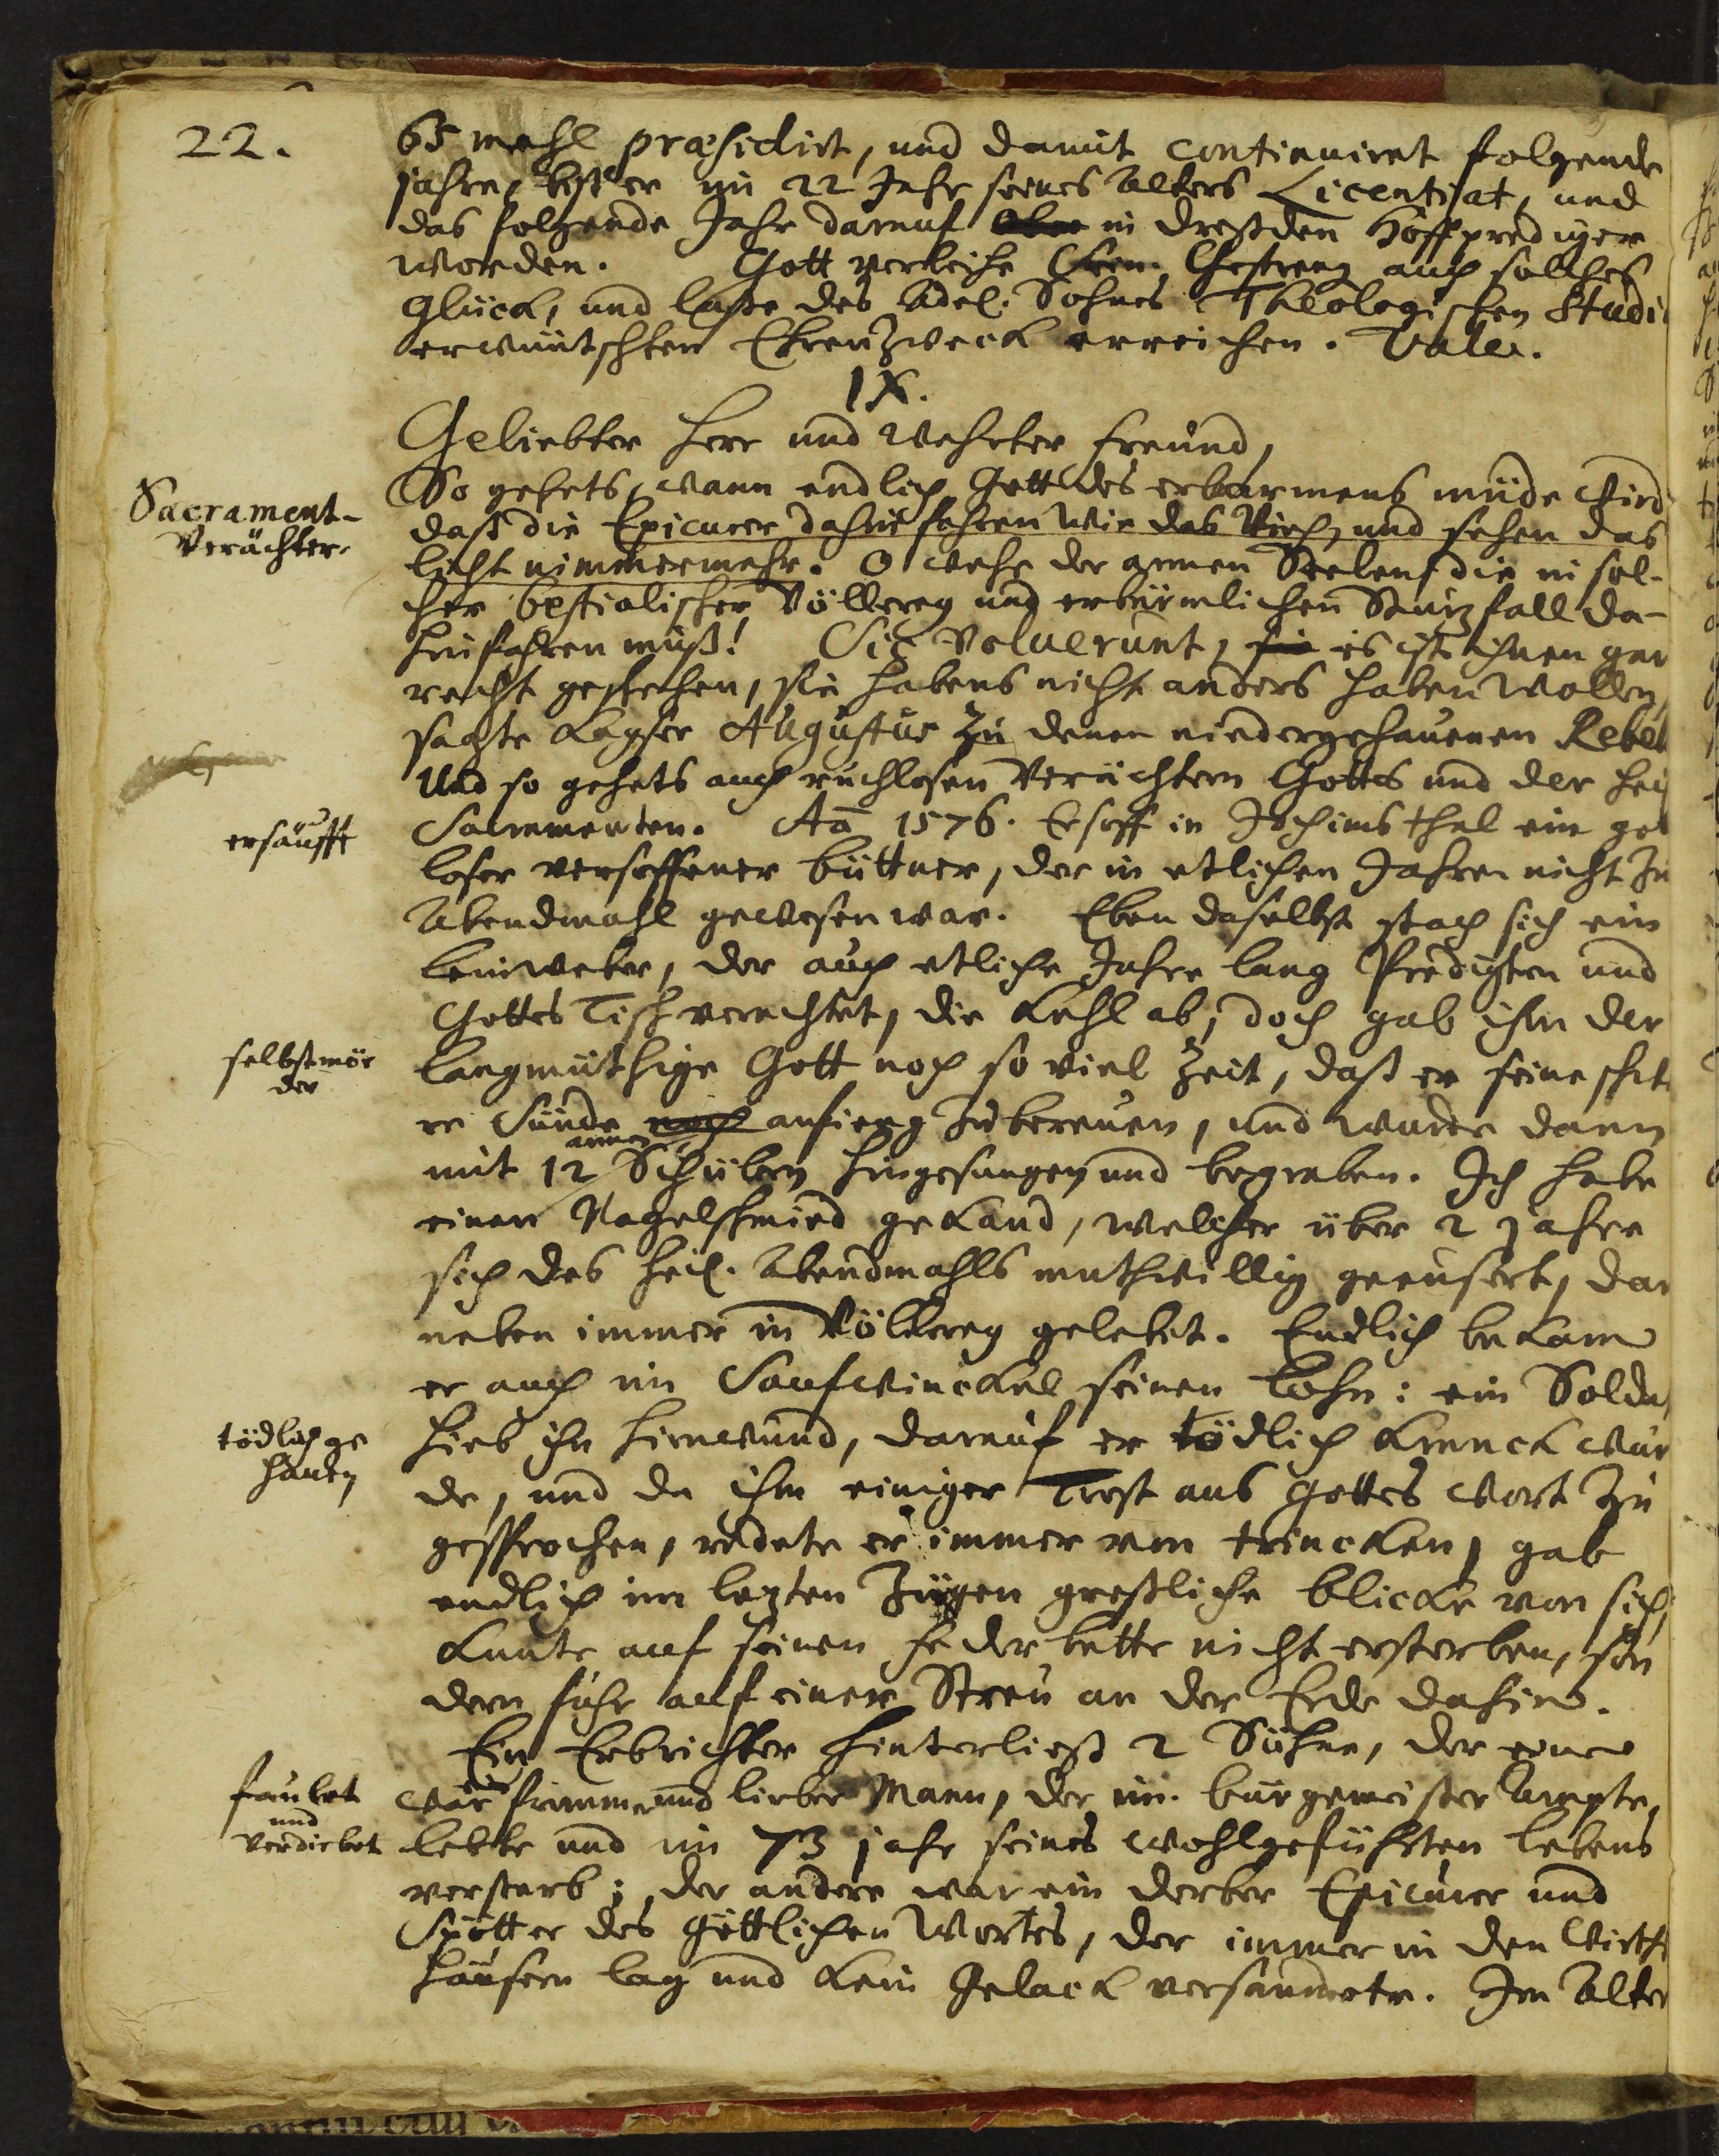 22.
65 mahl præsidirt, und damit continuiret folgende
jahre, biß er im 22 Jahr seines Alters Licentiat, und
das folgende Jahr darauf in Dreßden Hoffprediger
worden. Gott verleihe Gestreng auch solches
Glück, und laße des Adel. Sohnes Theologischen Studi
erwüntschten Ehrenzweck erreichen. Vale.
IX.
Geliebter Herr und Wehrter freund,
Sacrament-
Verächter.
So gehets, wann endlich Gott des erbarmens müde wird
daß die Epicurer dahin fahren wie das Vieh, und sehen das
licht nimmermehr. O wehe der armen Seelen, die in sol-
cher bestialischer Völlerey und erbärmlichen Sturzfall da-
hinfahren muß! Sic Voluerunt, es ist ihnen gar
recht geschehen, sie habens nicht anders haben wollen,
sagte Kayser Augustus zu denen niedergehauenen Rebel
Und so gehets auch ruchlosen Verächtern Gottes und der hei
ersäufft
Sacramenten. Aō 1576. Ersoff in Jochimsthal ein got
loser versoffener büttner, der in etlichen Jahren nicht zu
Abendmahl gewesen war. Eben daselbst stach sich ein
Leinweber, der auch etliche Jahre lang Predigten und
Gottes Tisch verachtet, die Kehl ab, doch gab ihm der
selbstmör
der
langmüthige Gott noch so viel Zeit, daß er seine schwe
re Sünde noch anfieng zu bereuen, und wurde dann
mit 12 armen Schülern hingesungen und begraben. Ich habe
einen Nagelschmied gekand, welcher über 2 jahre
sich des heil. Abendmahls muthwillig geeusert, dar
neben immer in Völlerey gelebet. Endlich bekam
er auch im Saufwinckel seinen Lohn: ein Solda
tödlich ge
hauen
hieb ihn hirnwund, darauf er tödlich kranck wur
de, und da ihm einiger Trost aus Gottes Wort zu
gesprochen, redete er immer von trincken, gab
endlich im lezten Zügen greßliche blicke von sich,
kunte auf seinen federbette nicht ersterben, son
dern fuhr auf einer Streu an der Erde dahin.
Ein Erbrichter hinterließ 2 Söhne, der eine
faulet
und
verdirbet
war frommer und lieber Mann, der im burgemeister Ampte
lebte und im 73 jahr seines wohlgeführten lebens
verstarb; der andere war ein derber Epicurer und
Spötter des göttlichen Wortes, der immer in den Wirths
häusern lag und kein Gelack versäumete. Im Alter